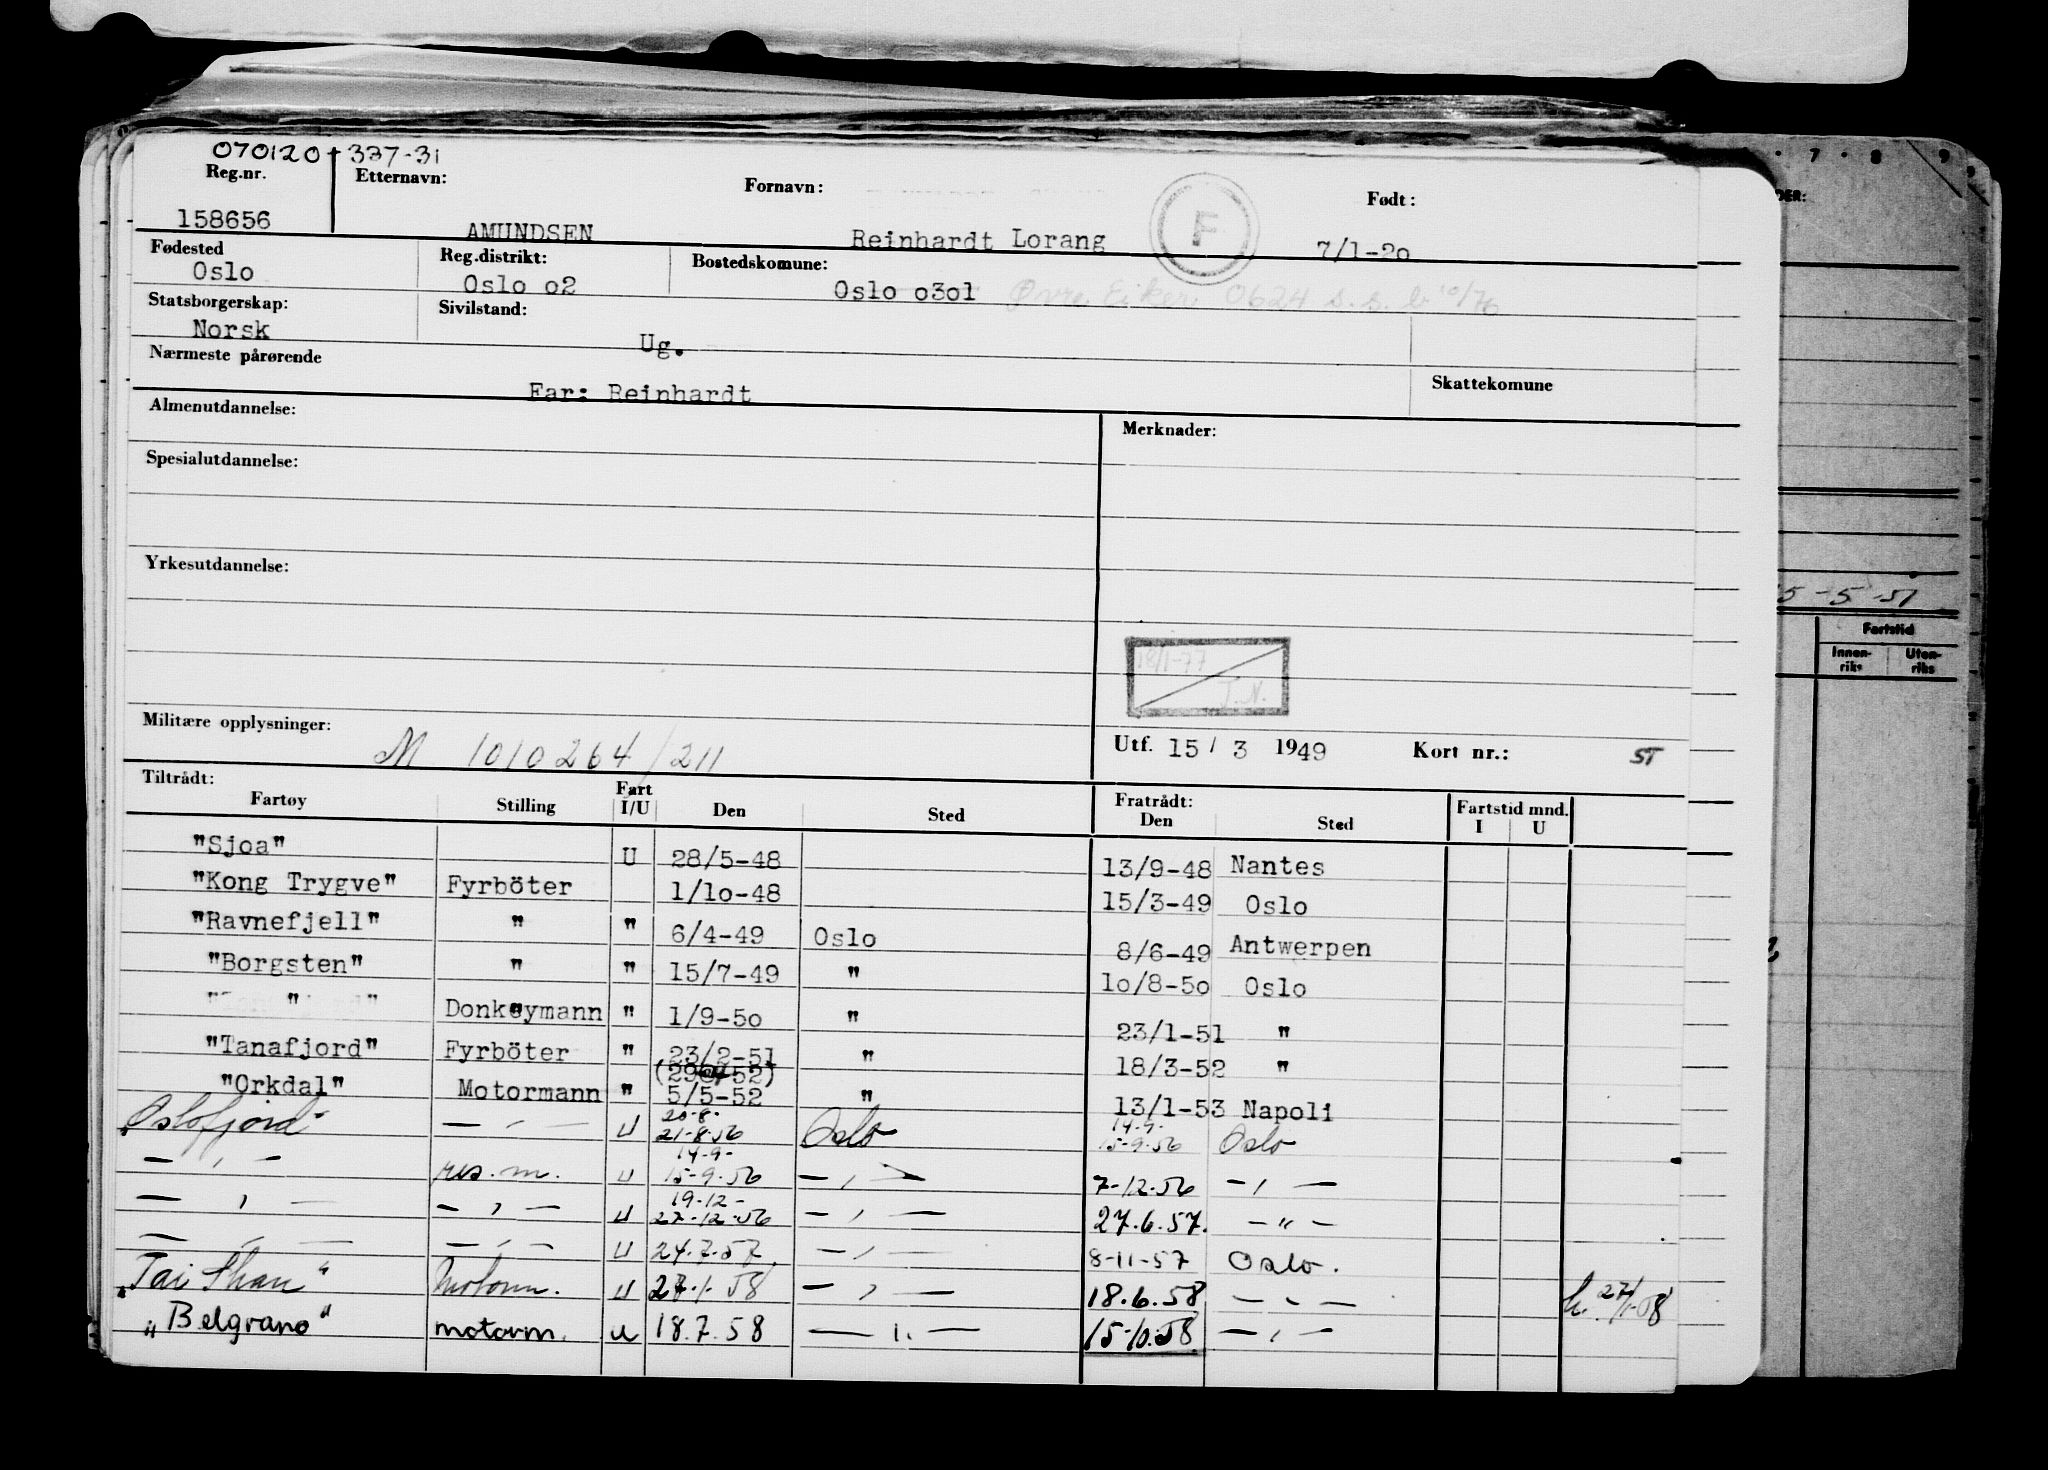 070120-337-31
Reg.nr. Etternavn: Fornavn: Født:
158656 AMUNDSEN Reinhardt Lorang F 7/1-20
Fødested Reg.distrikt: Bostedskomune:
Oslo Oslo o2 Oslo o3o1 Øvre Eiker 0624
Statsborgerskap: Sivilstand:
Norsk Ug.
Nærmeste pårørende Skattekomune
Far: Reinhardt
Almenutdannelse: Merknader:
Spesialutdannelse:
Yrkesutdannelse:
18/1-77
T.N.
Militære opplysninger: M 1010264/211 Utf. 15/3 1949 Kort nr.: ST
Tiltrådt: Fratrådt:
Fartøy Stilling Fart I/U Den Sted Den Sted Fartstid mnd. I U
"Sjoa" U 28/5-48 13/9-48 Nantes
"Kong Trygve" Fyrböter 1/10-48 15/3-49 Oslo
"Ravnefjell" " " 6/4-49 Oslo 8/6-49 Antwerpen
"Borgsten" " " 15/7-49 " 10/8-50 Oslo
" Donkeymann " 1/9-50 " 23/1-51 "
"Tanafjord" Fyrböter " 23/2-51 " 18/3-52 "
"Orkdal" Motormann " 5/5-52 " 13/1-53 Napoli
"Oslofjord" — " — U 20-8- 21-8-56 Oslo 14-9- 15-9-56 Oslo
— " — res.m. U 14-9- 15-9-56 — " — 7-12-56 — " —
— " — — " — U 19-12- 27-12-56 — " — 27.6.57. — " —
— " — — " — U 24.7.57. — " — 8-11-57 Oslo.
"Tai Shan" Motorm. U 27.1.58 — " — 18.6.58 — " — h. 27/1-58
"Belgrano" motorm. u 18.7.58 — " — 15-10.58 — " —
7 8 9
DER:
15-5-51
Fartstid
Innen-riks Uten-riks